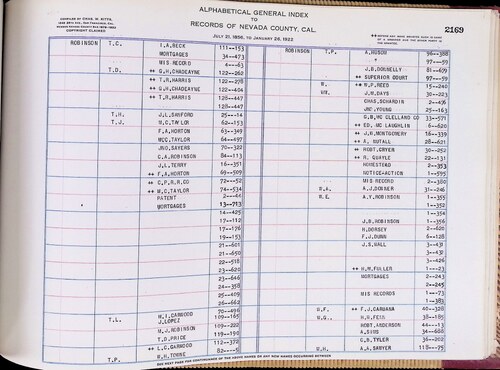 ALPHABETICAL GENERAL INDEX
TO
RECORDS OF NEVADA COUNTY, CAL.
JULY 21, 1856, TO JANUARY 28, 1922
2169
COPYRIGHT CLAIMED
ROBINSON T.C. I.A. BECK 111—153
MORTGAGES 34—473
MIS RECORD 4—63
T.D. ++ G.H. CHADEAYNE 122—262
++ T.R. HARRIS 122—257
++ G.H. CHADEAYNE 122—404
++ T.R. HARRIS 128—447
128—447
T.H. J.L. SANFORD 25—14
T.J. W.C. TAYLOR 62—153
F.A. HORTON 63—349
WCC. TAYLOR 64—497
JNO. SAYERS 70—329
C.A. ROBINSON 84—113
J.L. TERRY 16—351
++ F.A. HORTON 69—509
++ C.P.R.R. CO 72—52
++ W.C. TAYLOR 74—534
PATENT 2—46
MORTGAGES 13—713
14—425
17—112
17—176
19—153
21—601
21—650
22—518
23—620
23—646
24—358
25—409
26—662
T.L. W.I. GARWOOD 70—496
J. LOPEZ 109—165
109—222
W.J. ROBINSON 119—190
T.D. PRICE 112—378
++ L.C. GARWOOD
T.P. W.H. TOWNE 82—5
ROBINSON T.P. A. HUSON 96—388
" 97—59
J.B. DONNELLY 81—659
++ SUPERIOR COURT 97—59
W. ++ W.P. REED 15—240
WM. J.M. DAYS 30—223
CHAS. SCHARDIN 2—476
JNO. YOUNG 25—163
G.B. MC CLELLAND 33—571
++ ED. MC LAUGHLIN 6—620
++ J.H. MONTGOMERY 16—339
++ A. NUTALL 28—621
++ ROBT. CRYER 30—252
++ R. QUAYLE 22—131
HOMESTEAD 2—353
NOTICE-ACTION 1—595
MIS RECORD 2—380
W.A. A.J. DONNER 31—246
W.E. A.Y. ROBINSON 1—355
1—352
1—354
J.B. ROBINSON 1—356
H. DORSEY 2—620
F.J. DUNN 6—128
J.S. WALL 3—431
3—432
3—426
++ H.M. FULLER 1—23
MORTGAGES 2—243
2—245
MIS RECORDS 1—73
1—383
W.F. ++ F.J. CARUANA 40—328
W.G. H.H. FEISS 38—185
ROBT. ANDERSON 44—13
A. SIMS 36—608
C.B. TYLER 36—202
W.H. A.A. SAWYER 118—75